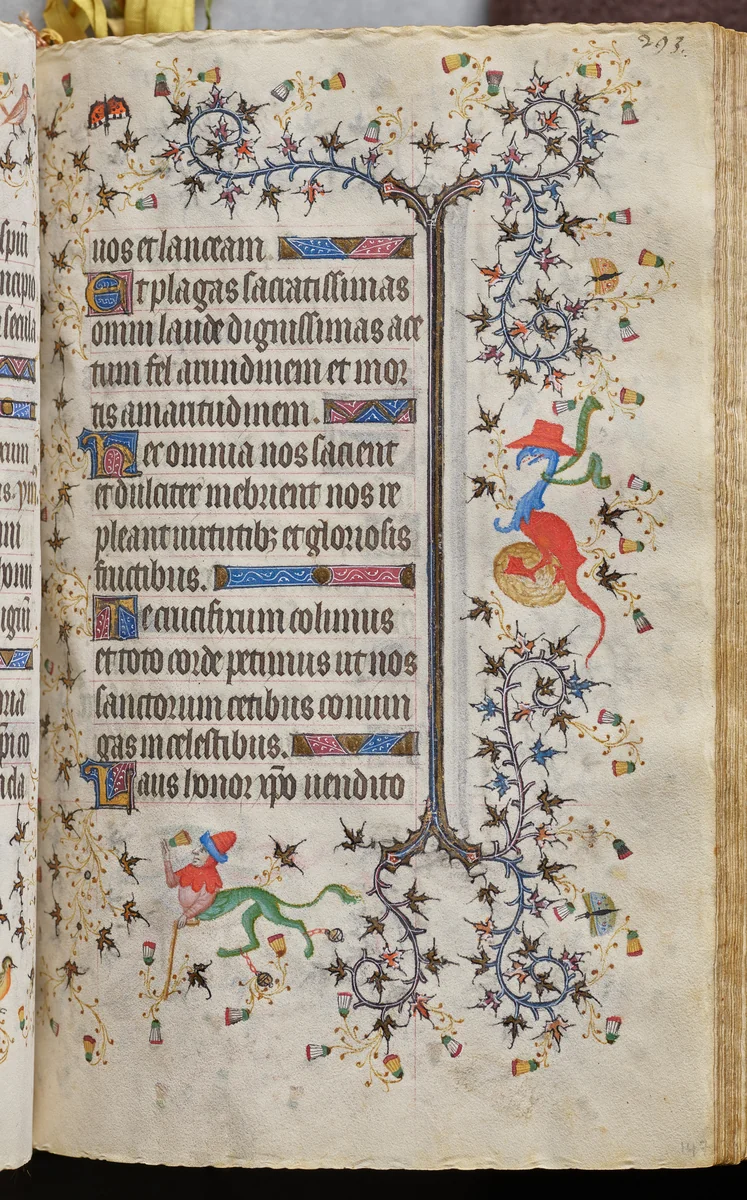 293.
uos et lanceam
Et plagas sacratissimas
omni laude dignissimas ace
tum fel arundinem et mor
tis amaritudinem.
Per omnia nos sacient
et dulciter inebrient nos re
pleant uirtutibꝫ et gloriosis
fructibus.
Te crucifixum colimus
et toto corde petimus ut nos
sanctorum cetibus coniun
gas in celestibus.
Laus honor xp̄o uendito
147
spiri
ncipio
secula